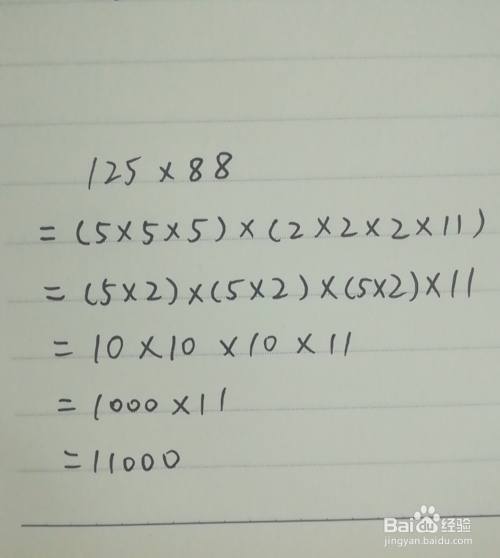 125×88
=(5×5×5)×(2×2×2×11)
=(5×2)×(5×2)×(5×2)×11
=10×10×10×11
=1000×11
=11000
Baidu经验
jingyan.baidu.com